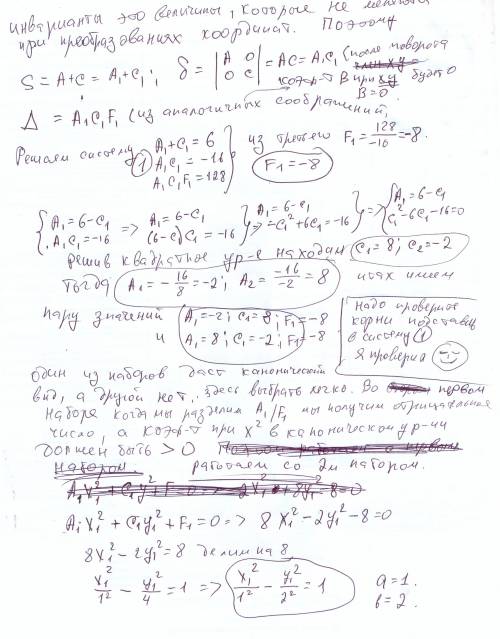 инварианты это величины, которые не меняются
при преобразованиях координат. Поэтому
S = A+C = A₁+C₁; δ = |A 0; 0 C| = AC = A₁C₁ (после поворота
коэф-т B при xy будет 0
B=0.
Δ = A₁C₁F₁ (из аналогичных соображений,
Решаем систему ① A₁+C₁ = 6
A₁C₁ = -16
A₁C₁F₁ = 128 } из третьего F₁ = 128/-16 = -8.
F₁ = -8
{ A₁ = 6-C₁, A₁C₁ = -16 => A₁ = 6-C₁, (6-C₁)C₁ = -16 } => A₁ = 6-C₁, -C₁²+6C₁ = -16 } => { A₁ = 6-C₁, C₁²-6C₁-16=0
Решив квадратное ур-е находим C₁ = 8; C₂ = -2
тогда A₁ = -16/8 = -2; A₂ = -16/-2 = 8 итак имеем
пару значений A₁ = -2; C₁ = 8; F₁ = -8
и A₁ = 8; C₁ = -2; F₁ = -8
надо проверить
корни подставив
в систему ①
Я проверил
один из наборов даст канонический
вид, а другой нет. Здесь выбрать легко. Во первом
наборе когда мы разделим A₁/F₁ мы получим отрицательное
число, а коэф-т при x² в каноническом ур-нии
должен быть > 0
работаем со 2м набором.
A₁x₁² + C₁y₁² + F₁ = 0 => 8x₁² - 2y₁² - 8 = 0
8x₁² - 2y₁² = 8 делим на 8
x₁²/1² - y₁²/4 = 1 => x₁²/1² - y₁²/2² = 1 a = 1.
b = 2.